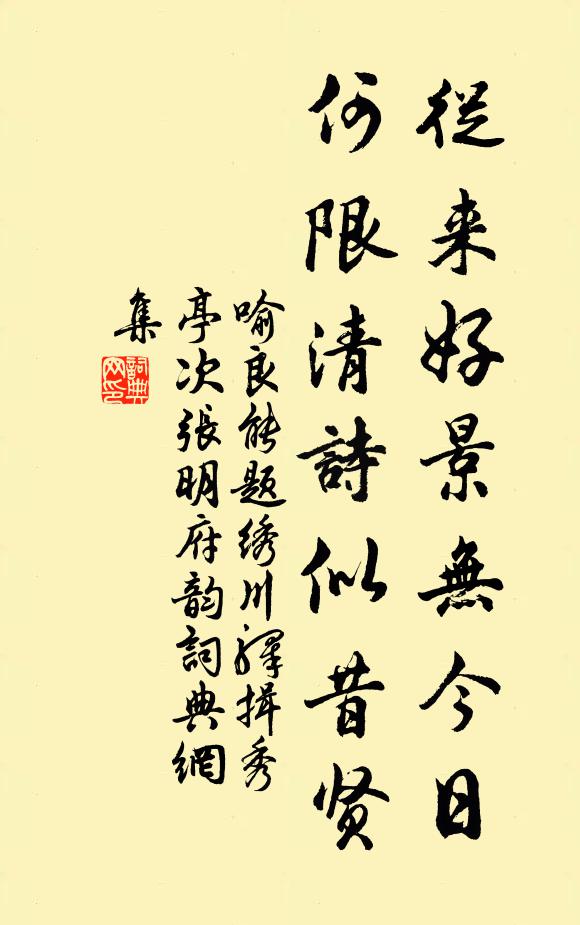 從来好景無今日
何限清詩似昔贤
喻良能题绣川驿揖秀
亭次張明府韵詞典網
集
詞典網印